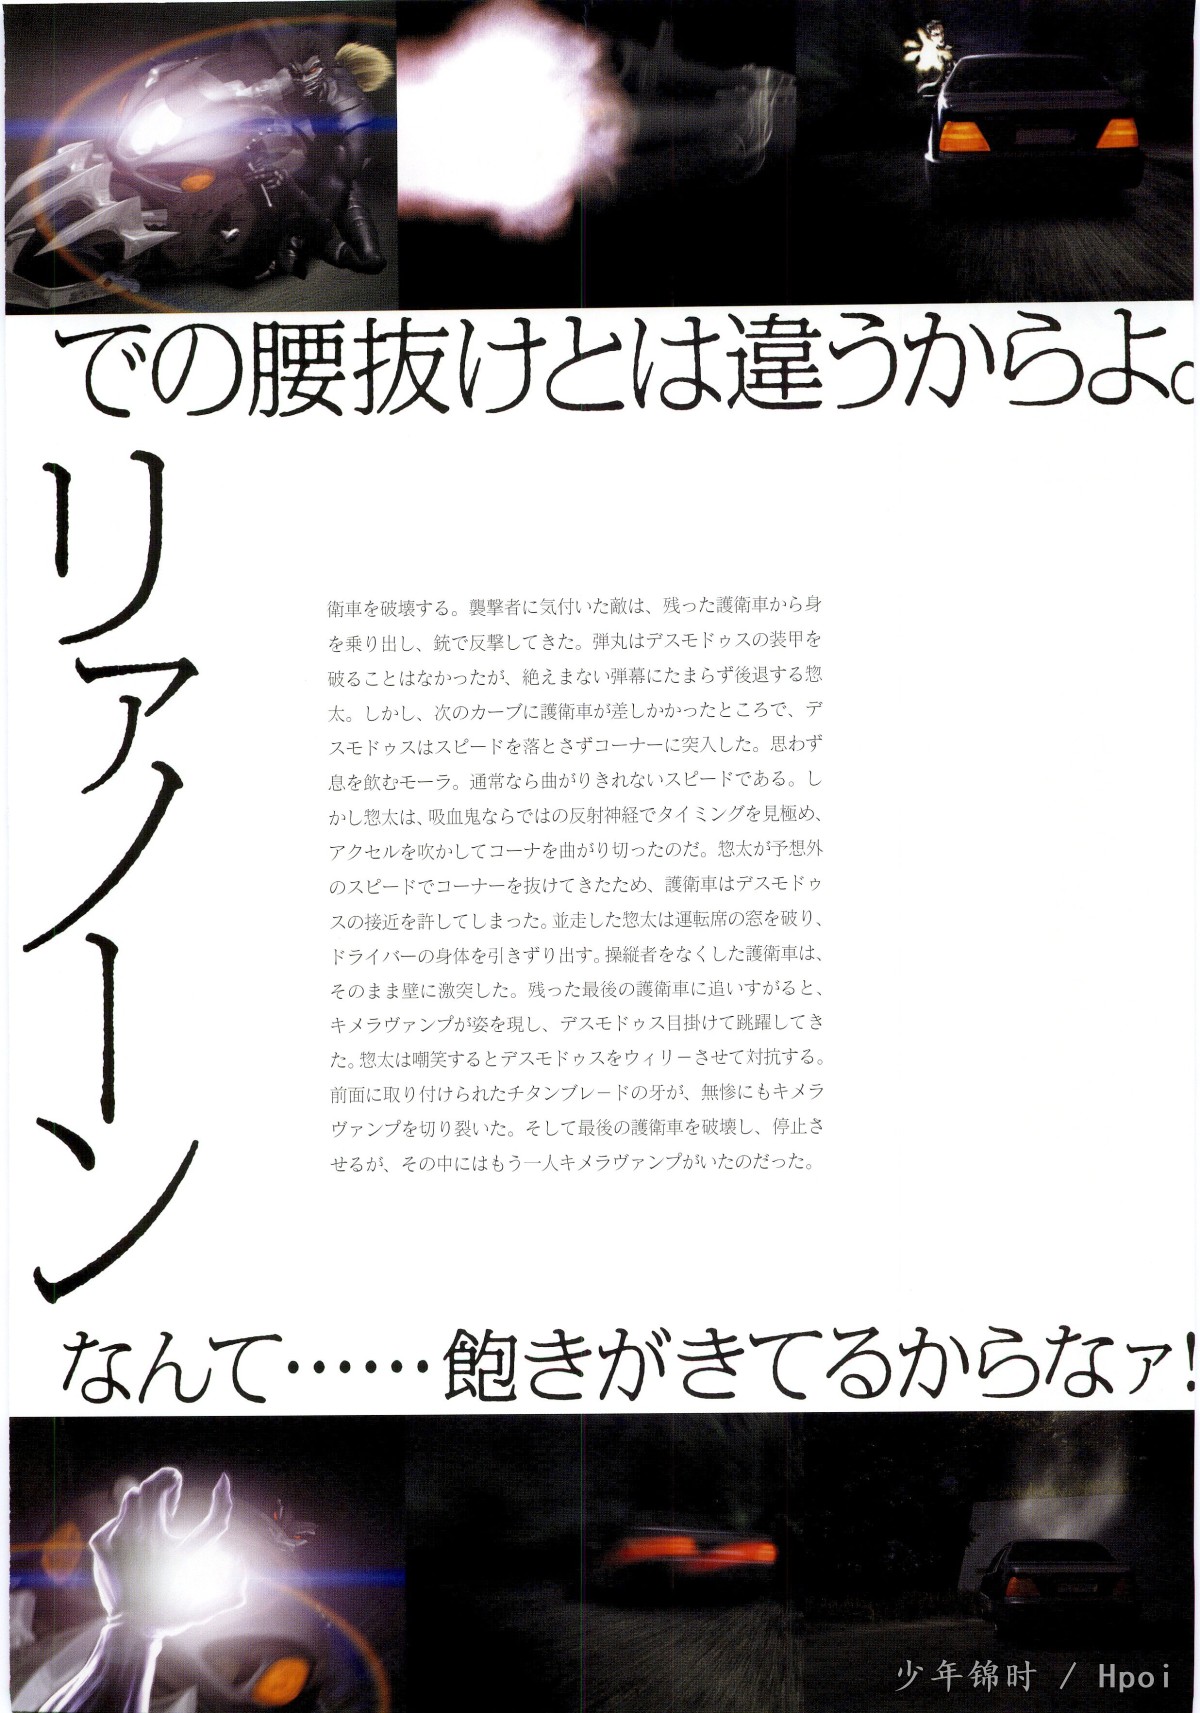 での腰抜けとは違うからよ。
リアノーン
衛車を破壊する。襲撃者に気付いた敵は、残った護衛車から身
を乗り出し、銃で反撃してきた。弾丸はデスモドゥスの装甲を
破ることはなかったが、絶えまない弾幕にたまらず後退する惣
太。しかし、次のカーブに護衛車が差しかかったところで、デ
スモドゥスはスピードを落とさずコーナーに突入した。思わず
息を飲むモーラ。通常なら曲がりきれないスピードである。し
かし惣太は、吸血鬼ならではの反射神経でタイミングを見極め、
アクセルを吹かしてコーナを曲がり切ったのだ。惣太が予想外
のスピードでコーナーを抜けてきたため、護衛車はデスモドゥ
スの接近を許してしまった。並走した惣太は運転席の窓を破り、
ドライバーの身体を引きずり出す。操縦者をなくした護衛車は、
そのまま壁に激突した。残った最後の護衛車に追いすがると、
キメラヴァンプが姿を現し、デスモドゥス目掛けて跳躍してき
た。惣太は嘲笑するとデスモドゥスをウィリーさせて対抗する。
前面に取り付けられたチタンブレードの牙が、無惨にもキメラ
ヴァンプを切り裂いた。そして最後の護衛車を破壊し、停止さ
せるが、その中にはもう一人キメラヴァンプがいたのだった。
なんて……飽きがきてるからなァ!
少年锦时 / Hpoi